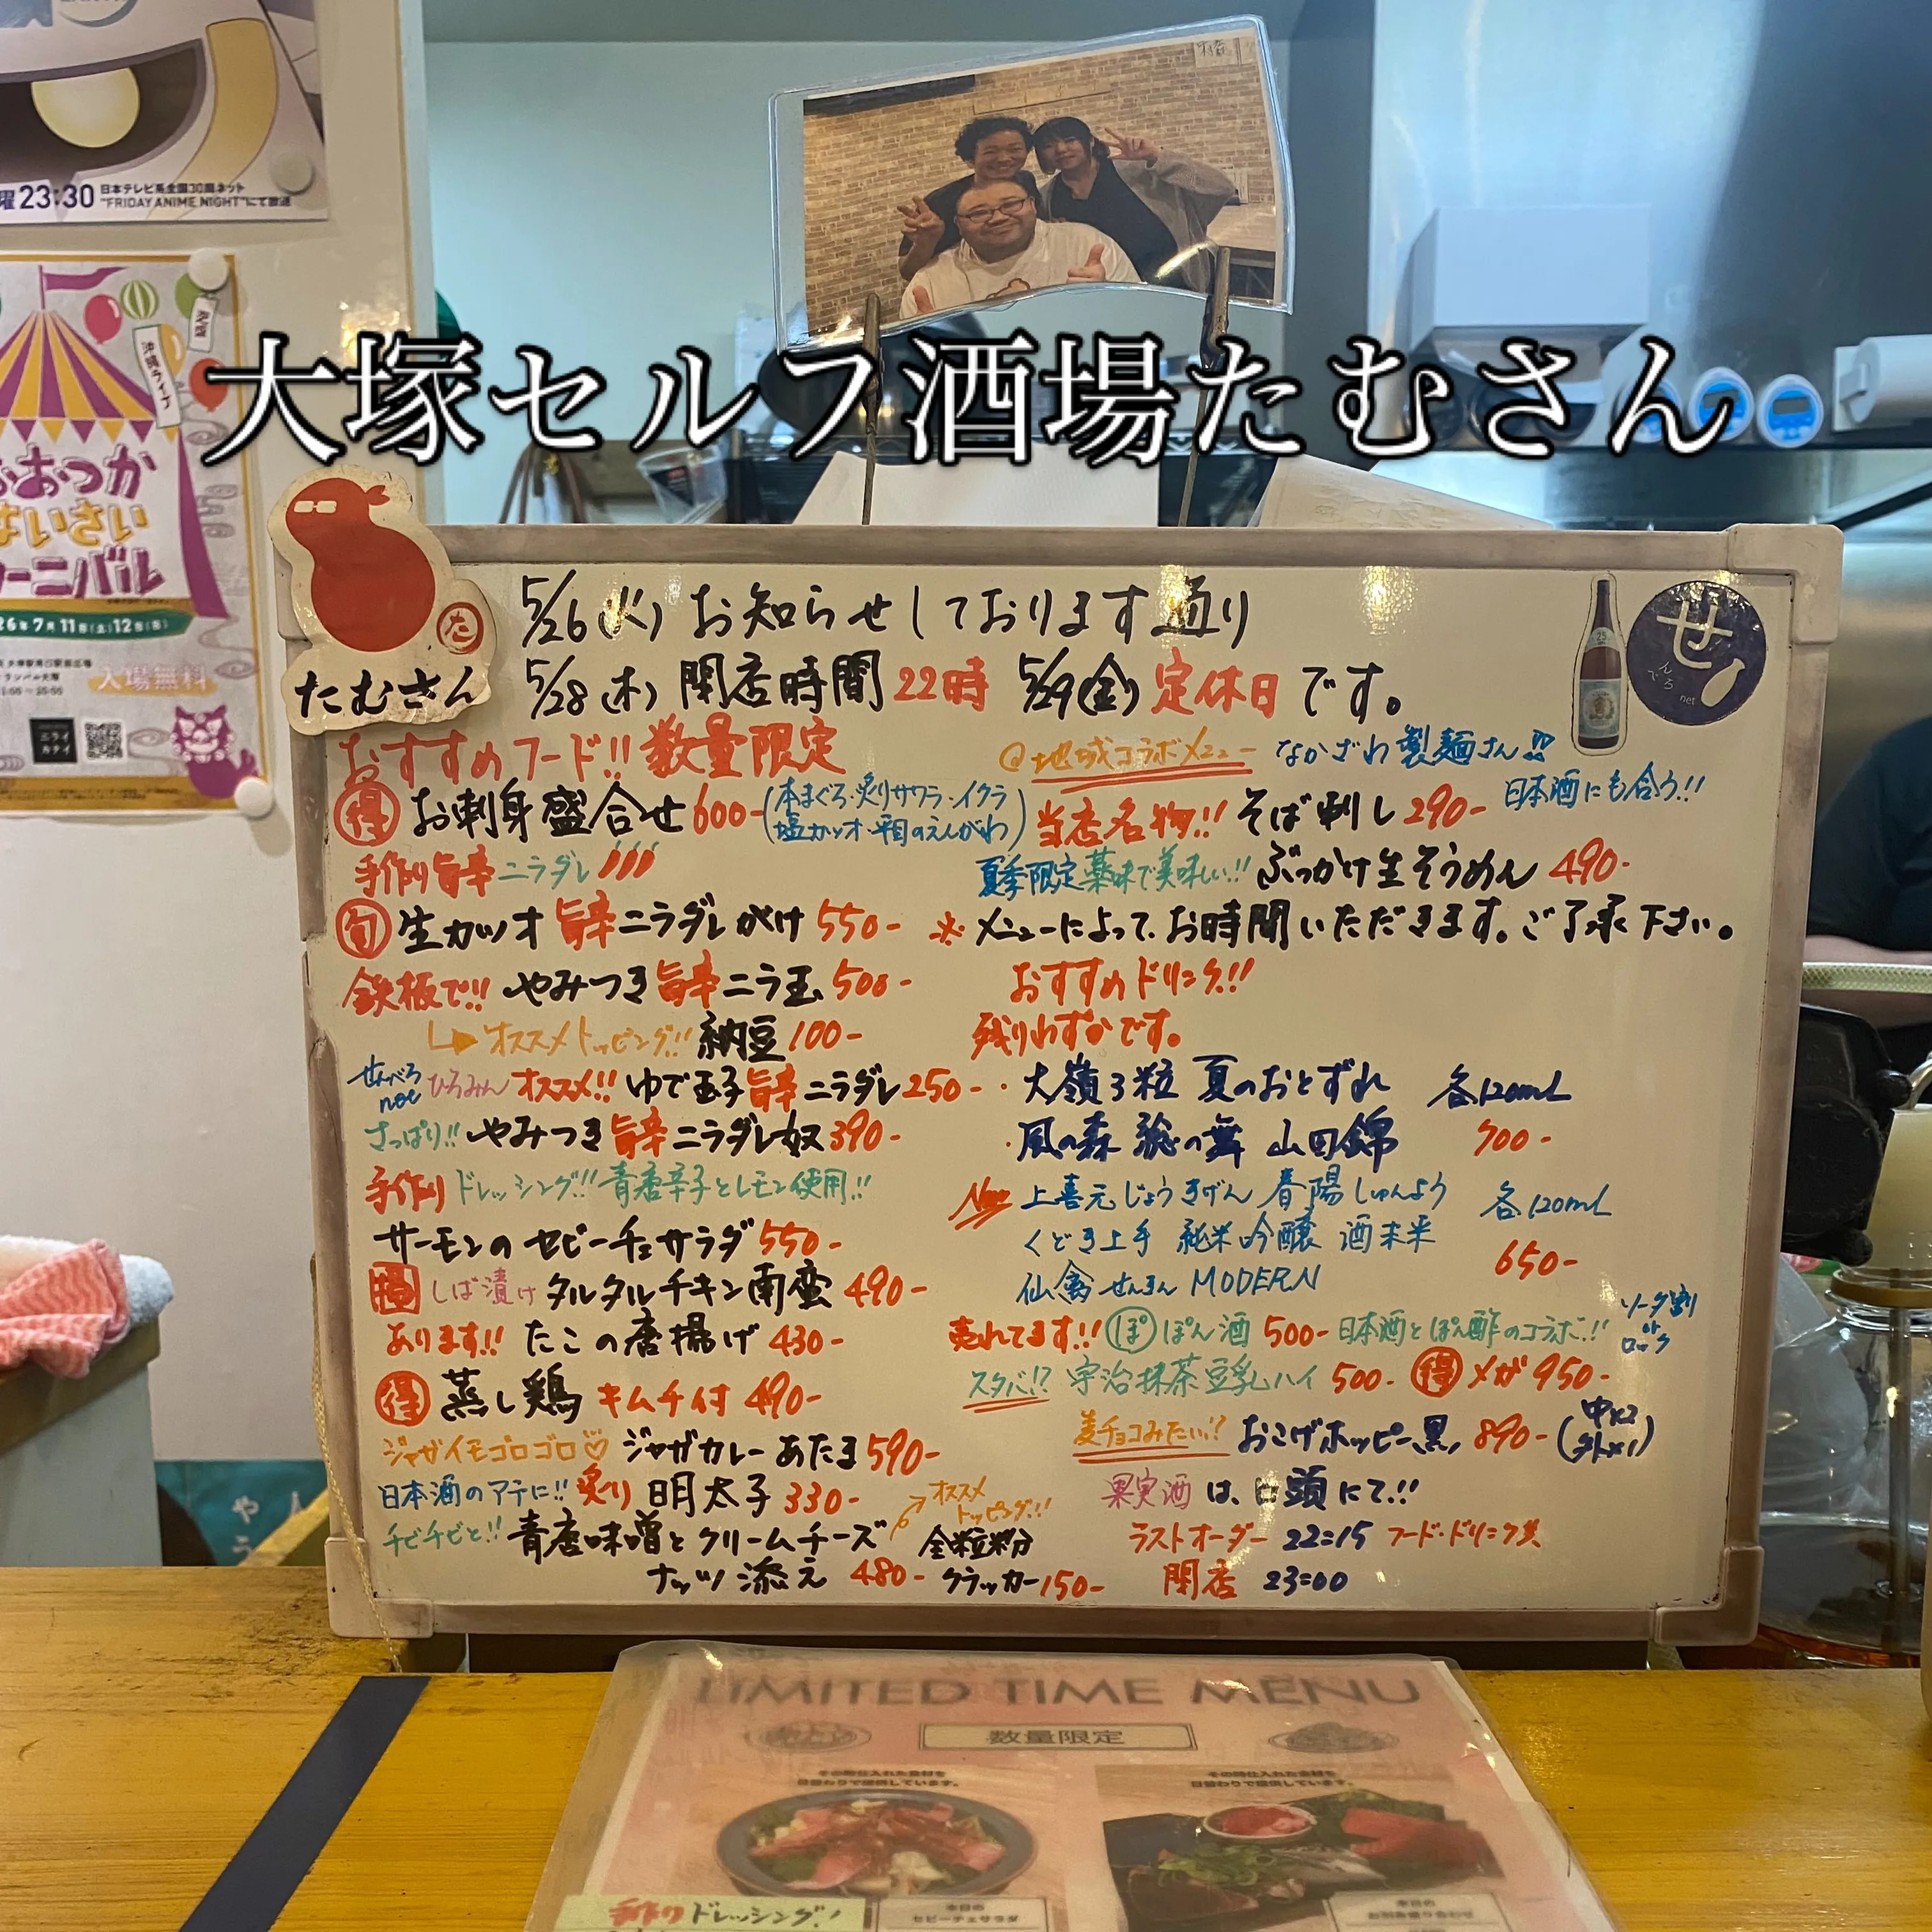 曜23:30 日本テレビ系全国30局ネット
"FRIDAY ANIME NIGHT"にて放送
沖縄ライブ
大塚セルフ酒場たむさん
おおつか
はいさい
カーニバル
26年7月11日(土)12日(日)
入場無料
ニライ
カナイ
た
たむさん
せ
んべろ
net
25
5/26(火) お知らせしております通り
5/28(木) 閉店時間 22時 5/29(金) 定休日 です。
おすすめフード!! 数量限定
得 お刺身盛合せ 600- (本まぐろ・炙りサワラ・イクラ
塩カツオ・平目のえんがわ)
手作り旨辛ニラダレ
旬 生カツオ 旨辛ニラダレがけ 550-
鉄板で!! やみつき旨辛ニラ玉 500-
オススメトッピング!! 納豆 100-
せんべろnet ひろみん オススメ!! ゆで玉子旨辛ニラダレ 250-
さっぱり!! やみつき旨辛ニラダレ奴 390-
手作りドレッシング!! 青唐辛子とレモン使用!!
サーモンのセビーチェサラダ 550-
しば漬けタルタルチキン南蛮 490-
あります!! たこの唐揚げ 430-
得 蒸し鶏 キムチ付 490-
ジャガイモゴロゴロ♡ ジャガカレーあたま 590-
日本酒のアテに!! 炙り明太子 330-
チビチビと!! 青唐味噌とクリームチーズ
ナッツ添え 480-
オススメトッピング!!
全粒粉
クラッカー 150-
@地域コラボメニュー なかざわ製麺さん!!
当店名物!! そば刺し 290- 日本酒にも合う!!
夏季限定 薬味で美味しい!! ぶっかけ生そうめん 490-
※メニューによって、お時間いただきます。ご了承下さい。
おすすめドリンク!!
残りわずかです。
・大嶺3粒 夏のおとずれ 各120mL
・風の森 総の舞 山田錦 700-
New 上喜元じょうきげん 春陽しゅんよう 各120mL
くどき上手 純米吟醸 酒未来
650-
仙禽せんきん MODERN
売れてます!! ぽ ぽん酒 500- 日本酒とぽん酢のコラボ!! ソーダ割りorロック
スタバ!? 宇治抹茶豆乳ハイ 500- 得 メガ 950-
麦チョコみたい!? おこげホッピー黒 890- (中x2
外x1)
果実酒は、口頭にて!!
ラストオーダー 22:15 フード・ドリンク共
閉店 23:00
LIMITED TIME MENU
数量限定
その時仕入れた食材を
日替わりで提供しています。
その時仕入れた食材を
日替わりで提供しています。
手作りドレッシング!
本日の
セビーチェサラダ
本日の
お刺身盛り合わせ